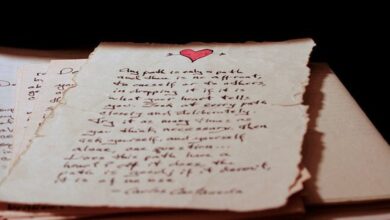 Any path is only a path
and there is no affront,
to oneself or to others
in dropping it if it is
what your heart tells
you. Look at every path
closely and deliberately.
Try it as many times as
you think necessary. Then
ask yourself, and yourself
alone, one question...
Does this path have a
heart? If it does, the
path is good; if it doesn't,
it is of no use.
- Carlos Castaneda